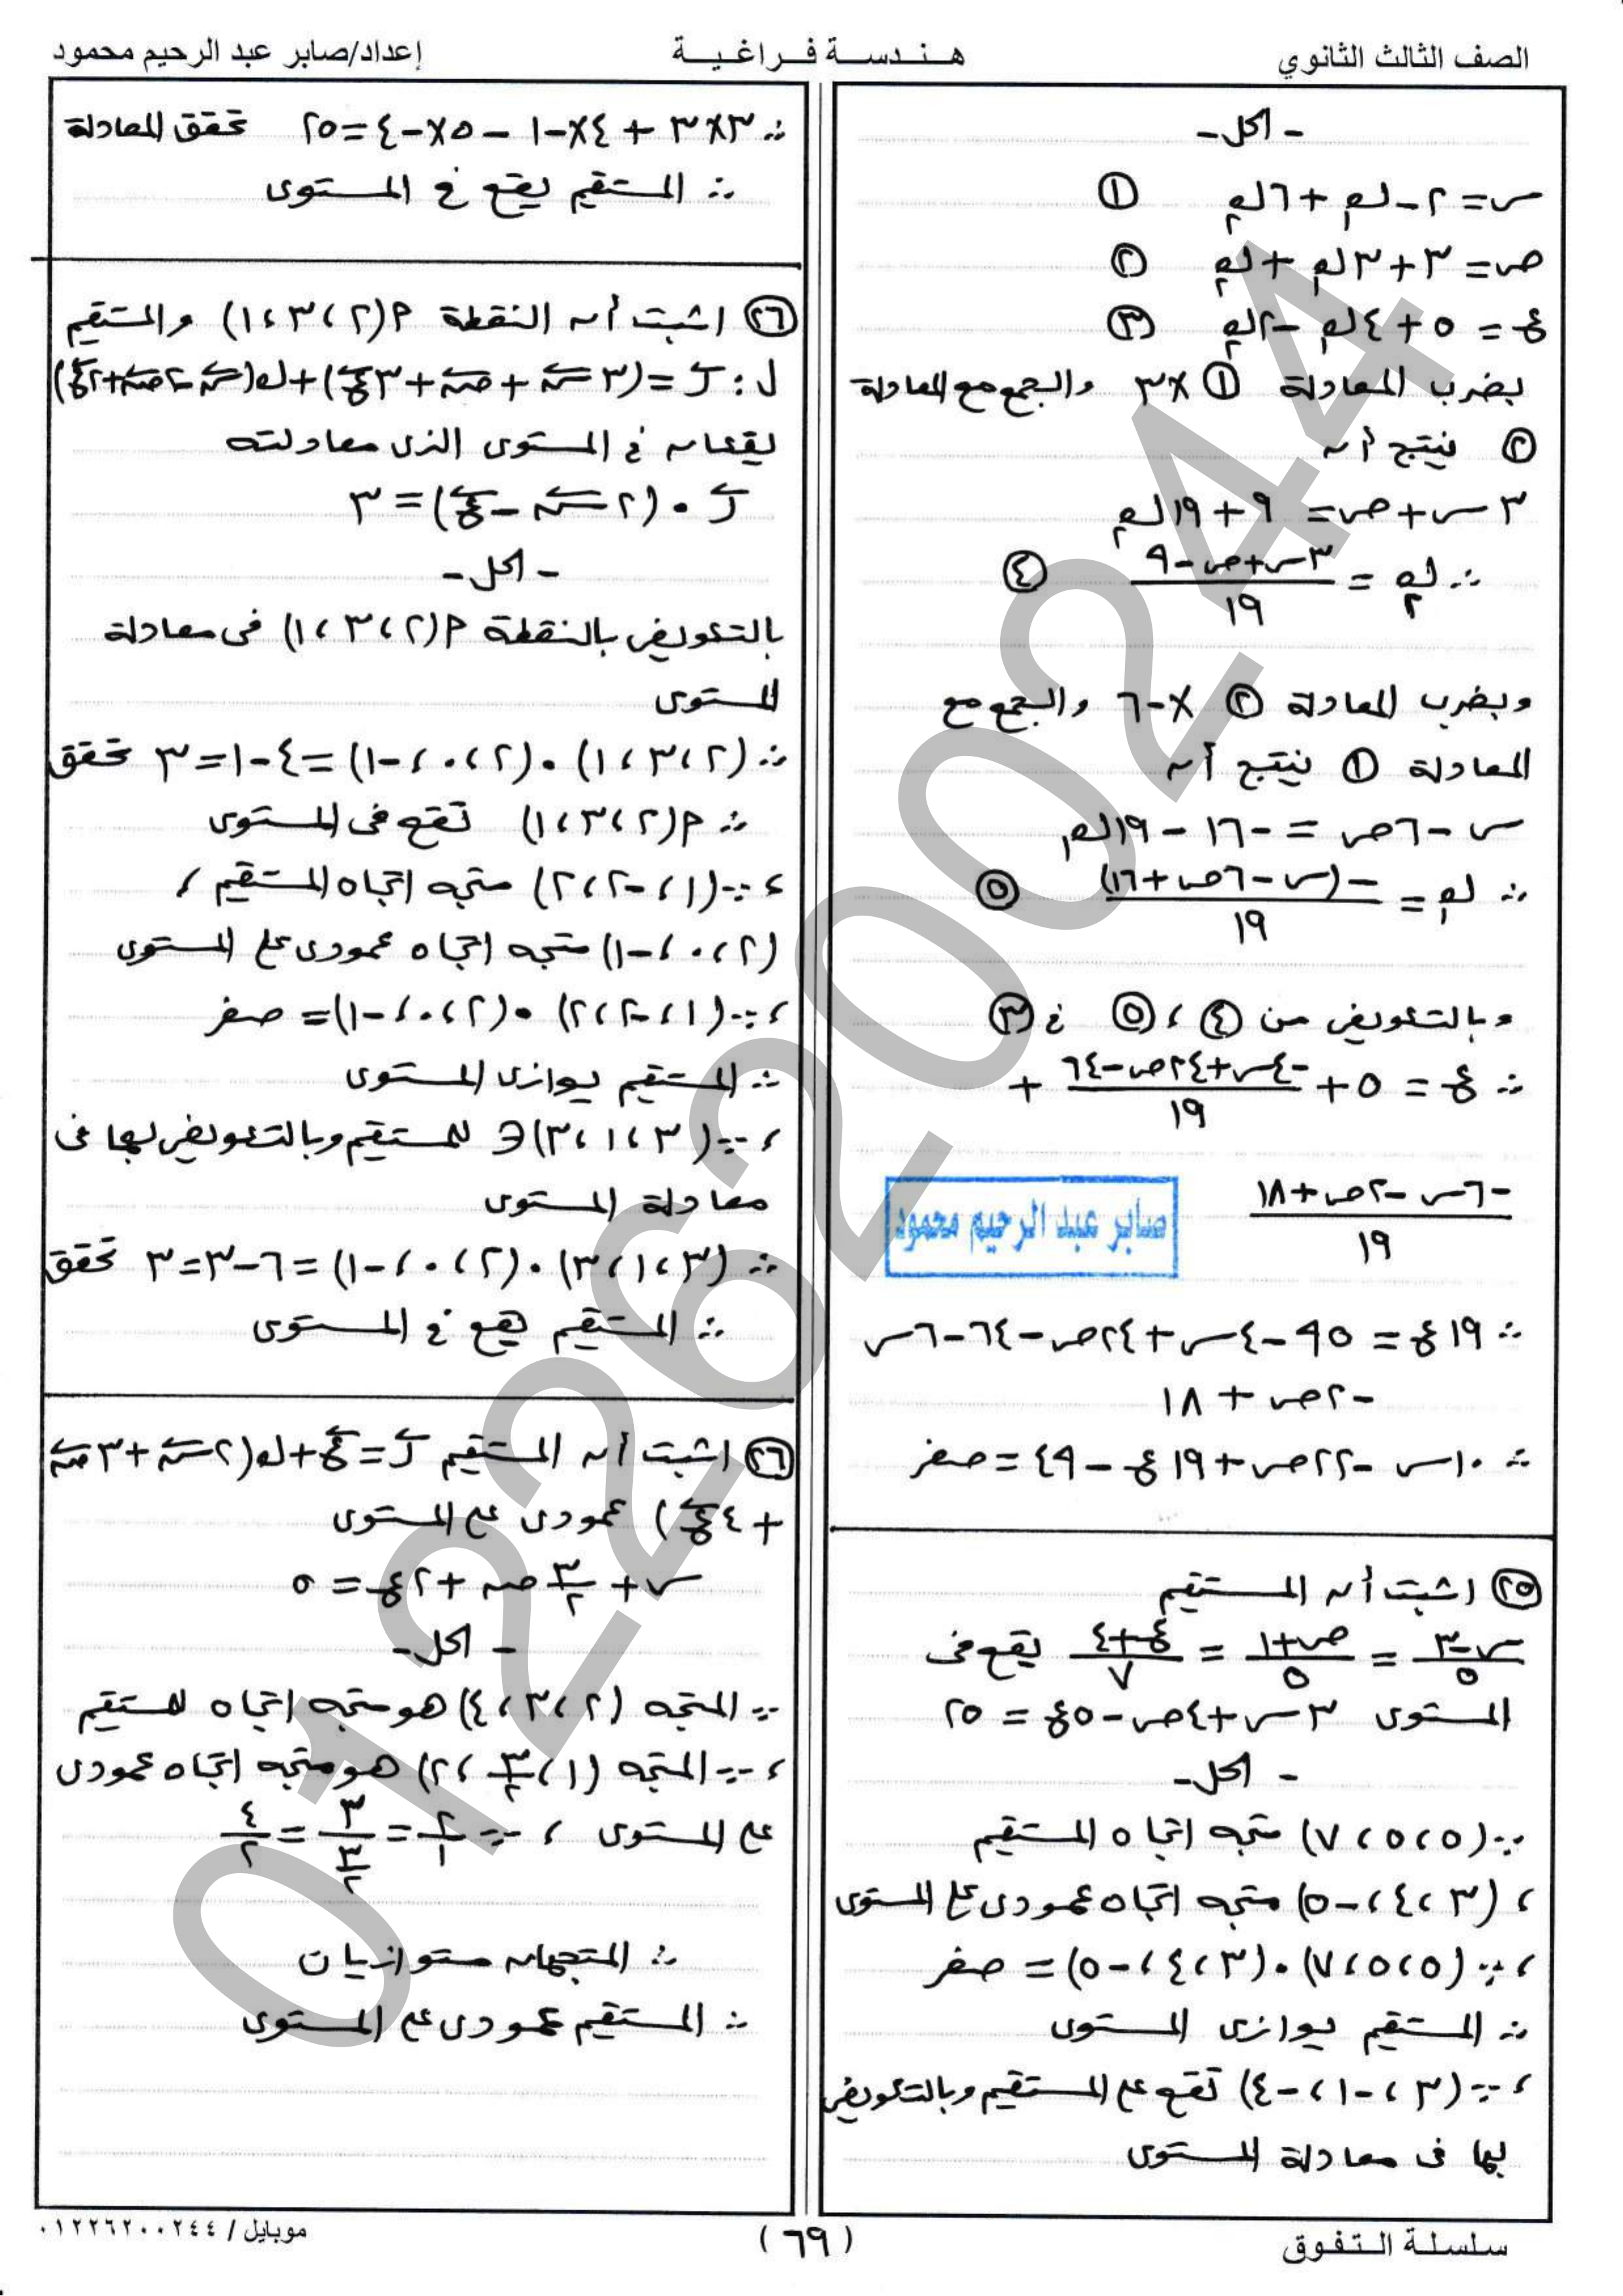 الصف الثالث الثانوي
هـنـدسـة فـراغـيـة
إعداد/صابر عبد الرحيم محمود
- الحل -
س = ٢ - ك١ + ٦ك٢ ①
ص = ٣ + ٣ك١ + ك٢ ②
ع = ٥ + ٤ك١ - ٢ك٢ ③
بضرب المعادلة ① × ٣ والجمع مع المعادلة
② ينتج أن
٣س + ص = ٩ + ١٩ك٢
∴ ك٢ = (٣س + ص - ٩)/١٩ ④
وبضرب المعادلة ② × -٦ والجمع مع
المعادلة ① ينتج أن
س - ٦ص = -١٦ - ١٩ك١
∴ ك١ = -(س - ٦ص + ١٦)/١٩ ⑤
وبالتعويض من ④ ، ⑤ في ③
∴ ع = ٥ + (-٤س + ٢٤ص - ٦٤)/١٩ +
(-٦س - ٢ص + ١٨)/١٩
صابر عبد الرحيم محمود
∴ ١٩ع = ٩٥ - ٤س + ٢٤ص - ٦٤ - ٦س
- ٢ص + ١٨
∴ ١٠س - ٢٢ص + ١٩ع - ٤٩ = صفر
㉕ اثبت أن المستقيم
(س-٣)/٥ = (ص+١)/٥ = (ع+٤)/٧ يقع فى
المستوى ٣س + ٤ص - ٥ع = ٢٥
- الحل -
∵ (٥ ، ٥ ، ٧) متجه اتجاه المستقيم
، (٣ ، ٤ ، -٥) متجه اتجاه عمودى على المستوى
، ∵ (٥ ، ٥ ، ٧) • (٣ ، ٤ ، -٥) = صفر
∴ المستقيم يوازى المستوى
، ∵ (٣ ، -١ ، -٤) تقع على المستقيم وبالتعويض
بها فى معادلة المستوى
∴ ٣×٣ + ٤×-١ - ٥×-٤ = ٢٥ تحقق المعادلة
∴ المستقيم يقع فى المستوى
㉖ اثبت أن النقطة م(٢ ، ٣ ، ١) والمستقيم
ل : ر = (٣س + ص + ٣ع) + ك(س - ٢ص + ٢ع)
يقعان فى المستوى الذى معادلته
ر • (٢س - ع) = ٣
- الحل -
بالتعويض بالنقطة م(٢ ، ٣ ، ١) فى معادلة
المستوى
∴ (٢ ، ٣ ، ١) • (٢ ، ٠ ، -١) = ٤ - ١ = ٣ تحقق
∴ م(٢ ، ٣ ، ١) تقع فى المستوى
، ∵ (١ ، -٢ ، ٢) متجه اتجاه المستقيم ،
(٢ ، ٠ ، -١) متجه اتجاه عمودى على المستوى
، ∵ (١ ، -٢ ، ٢) • (٢ ، ٠ ، -١) = صفر
∴ المستقيم يوازى المستوى
، ∵ (٣ ، ١ ، ٣) ∈ للمستقيم وبالتعويض بها فى
معادلة المستوى
∴ (٣ ، ١ ، ٣) • (٢ ، ٠ ، -١) = ٦ - ٣ = ٣ تحقق
∴ المستقيم يقع فى المستوى
㉖ اثبت أن المستقيم ر = ع + ك(٢س + ٣ص
+ ٤ع) عمودى على المستوى
س + ٣/٢ ص + ٢ع = ٥
- الحل -
∵ المتجه (٢ ، ٣ ، ٤) هو متجه اتجاه للمستقيم
، ∵ المتجه (١ ، ٣/٢ ، ٢) هو متجه اتجاه عمودى
على المستوى ، ∵ ٢/١ = ٣/(٣/٢) = ٤/٢
∴ المتجهان متوازيان
∴ المستقيم عمودى على المستوى
01226200244
سلسلة التفوق
(٦٩)
موبايل / ٠١٢٢٦٢٠٠٢٤٤